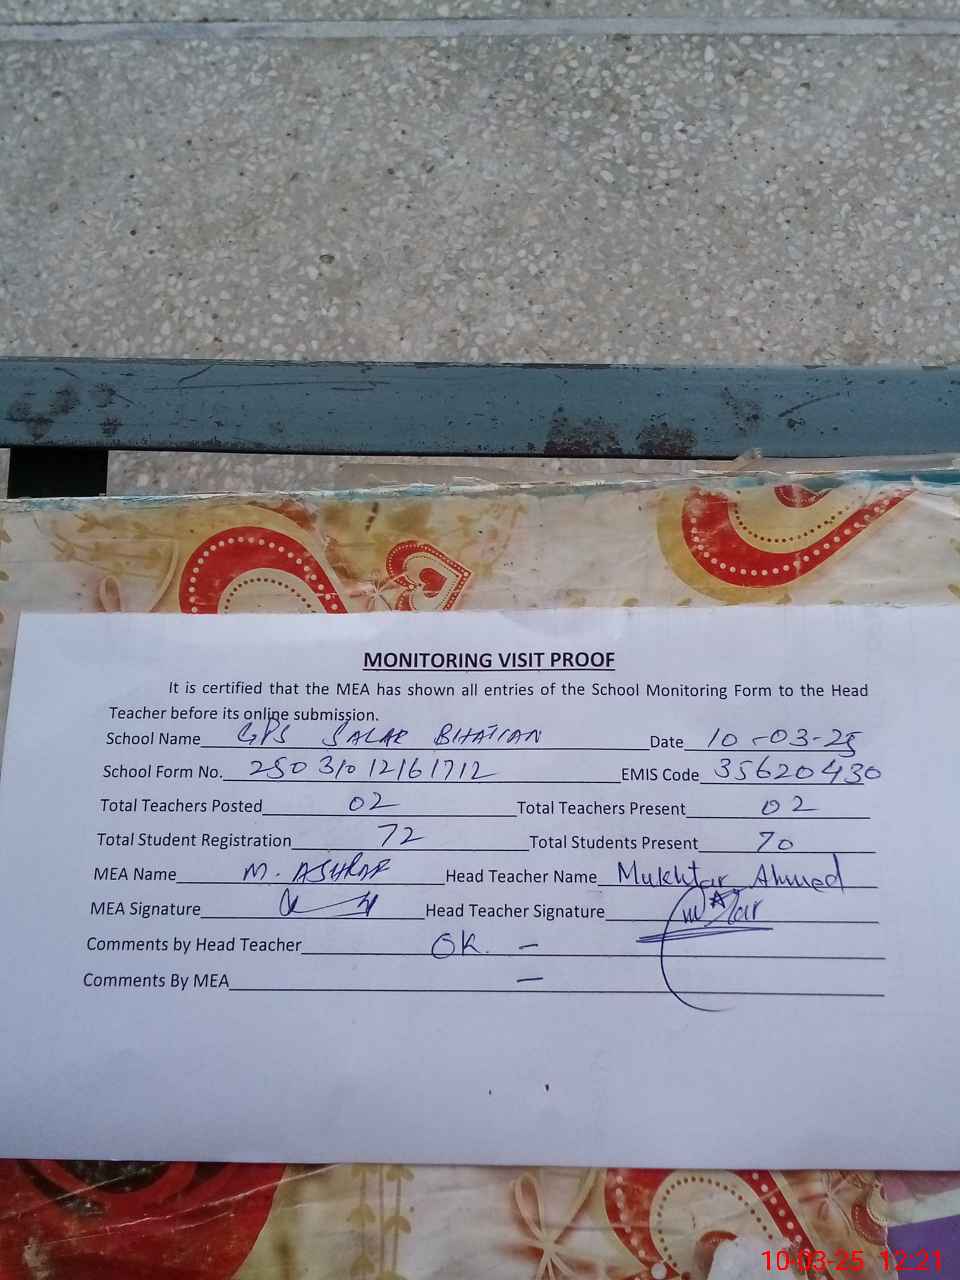 MONITORING VISIT PROOF
It is certified that the MEA has shown all entries of the School Monitoring Form to the Head
Teacher before its online submission.
School Name GPS SALAR BHATIAN Date 10-03-25
School Form No. 25031012161712 EMIS Code 35620430
Total Teachers Posted 02 Total Teachers Present 02
Total Student Registration 72 Total Students Present 70
MEA Name M. ASHRAF Head Teacher Name Mukhtar Ahmed
MEA Signature Head Teacher Signature
Comments by Head Teacher OK. -
Comments By MEA -
10-03-25 12:21